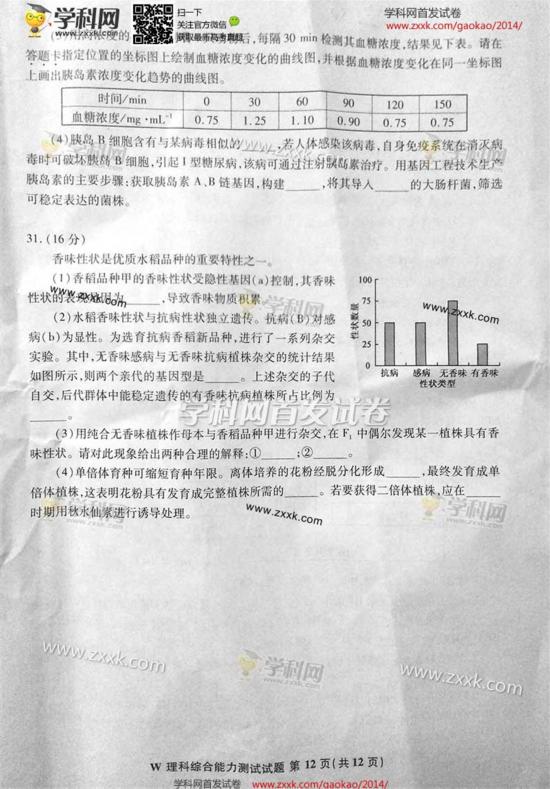 学科网 扫一扫 学科网首发试卷
WWW.ZXXK.COM 关注官方微信 www.zxxk.com/gaokao/2014/
获取最新高考真题
后,每隔 30 min 检测其血糖浓度,结果见下表。请在
答题卡指定位置的坐标图上绘制血糖浓度变化的曲线图,并根据血糖浓度变化在同一坐标图
上画出胰岛素浓度变化趋势的曲线图。
时间/min 0 30 60 90 120 150
血糖浓度/mg·mL⁻¹ 0.75 1.25 1.10 0.90 0.75 0.75
(4)胰岛 B 细胞含有与某病毒相似的______,若人体感染该病毒,自身免疫系统在消灭病
毒时可破坏胰岛 B 细胞,引起 I 型糖尿病,该病可通过注射胰岛素治疗。用基因工程技术生产
胰岛素的主要步骤:获取胰岛素 A、B 链基因,构建______,将其导入______的大肠杆菌,筛选
可稳定表达的菌株。
31. (16 分)
香味性状是优质水稻品种的重要特性之一。
(1)香稻品种甲的香味性状受隐性基因(a)控制,其香味
性状的表现是因为______,导致香味物质积累。
(2)水稻香味性状与抗病性状独立遗传。抗病(B)对感
病(b)为显性。为选育抗病香稻新品种,进行了一系列杂交
实验。其中,无香味感病与无香味抗病植株杂交的统计结果
如图所示,则两个亲代的基因型是______。上述杂交的子代
自交,后代群体中能稳定遗传的有香味抗病植株所占比例为
______。
性状数量
100
75
50
25
0
抗病 感病 无香味 有香味
性状类型
(3)用纯合无香味植株作母本与香稻品种甲进行杂交,在 F₁ 中偶尔发现某一植株具有香
味性状。请对此现象给出两种合理的解释:①______;②______。
(4)单倍体育种可缩短育种年限。离体培养的花粉经脱分化形成______,最终发育成单
倍体植株,这表明花粉具有发育成完整植株所需的______。若要获得二倍体植株,应在______
时期用秋水仙素进行诱导处理。
学科网首发试卷
www.zxxk.com
www.zxxk.com
www.zxxk.com
学科网 zxxk.com
www.zxxk.com
W 理科综合能力测试试题 第 12 页(共 12 页)
学科网首发试卷 www.zxxk.com/gaokao/2014/